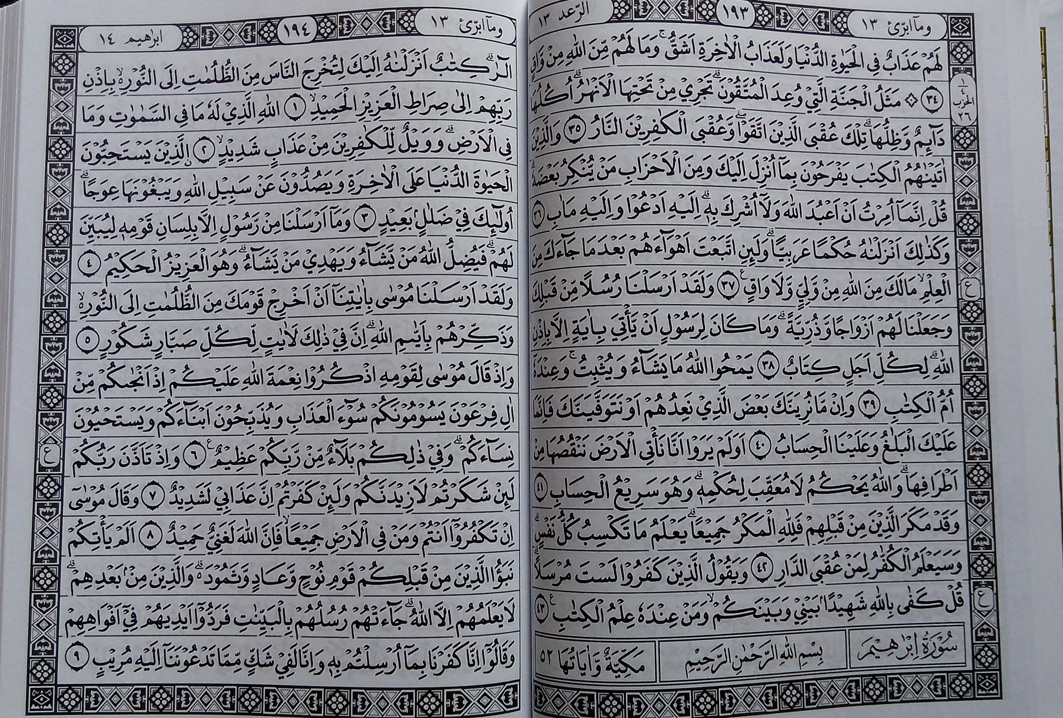 وما ابرئ ١٣
١٩٣
الرعد ١٣
لَهُمْ عَذَابٌ فِى الْحَيٰوةِ الدُّنْيَا وَلَعَذَابُ الْاٰخِرَةِ اَشَقُّ ۚ وَمَا لَهُمْ مِّنَ اللّٰهِ مِنْ
٣٤ ۞ مَثَلُ الْجَنَّةِ الَّتِيْ وُعِدَ الْمُتَّقُوْنَۗ تَجْرِيْ مِنْ تَحْتِهَا الْاَنْهٰرُۗ اُكُلُهَا
دَاۤىِٕمٌ وَّظِلُّهَاۗ تِلْكَ عُقْبَى الَّذِيْنَ اتَّقَوْاۖ وَّعُقْبَى الْكٰفِرِيْنَ النَّارُ ٣٥ وَالَّذِيْنَ
اٰتَيْنٰهُمُ الْكِتٰبَ يَفْرَحُوْنَ بِمَآ اُنْزِلَ اِلَيْكَ وَمِنَ الْاَحْزَابِ مَنْ يُّنْكِرُ بَعْضَهٗ
قُلْ اِنَّمَآ اُمِرْتُ اَنْ اَعْبُدَ اللّٰهَ وَلَآ اُشْرِكَ بِهٖۗ اِلَيْهِ اَدْعُوْا وَاِلَيْهِ مَاٰبِ ٣٦
وَكَذٰلِكَ اَنْزَلْنٰهُ حُكْمًا عَرَبِيًّاۗ وَلَىِٕنِ اتَّبَعْتَ اَهْوَاۤءَهُمْ بَعْدَمَا جَاۤءَكَ مِنَ
الْعِلْمِۙ مَا لَكَ مِنَ اللّٰهِ مِنْ وَّلِيٍّ وَّلَا وَاقٍ ٣٧ وَلَقَدْ اَرْسَلْنَا رُسُلًا مِّنْ قَبْلِكَ
وَجَعَلْنَا لَهُمْ اَزْوَاجًا وَّذُرِّيَّةًۗ وَمَا كَانَ لِرَسُوْلٍ اَنْ يَّأْتِيَ بِاٰيَةٍ اِلَّا بِاِذْنِ
اللّٰهِۗ لِكُلِّ اَجَلٍ كِتَابٌ ٣٨ يَمْحُوا اللّٰهُ مَا يَشَاۤءُ وَيُثْبِتُۚ وَعِنْدَهٗٓ
اُمُّ الْكِتٰبِ ٣٩ وَاِنْ مَّا نُرِيَنَّكَ بَعْضَ الَّذِيْ نَعِدُهُمْ اَوْ نَتَوَفَّيَنَّكَ فَاِنَّمَا
عَلَيْكَ الْبَلٰغُ وَعَلَيْنَا الْحِسَابُ ٤٠ اَوَلَمْ يَرَوْا اَنَّا نَأْتِى الْاَرْضَ نَنْقُصُهَا مِنْ
اَطْرَافِهَاۗ وَاللّٰهُ يَحْكُمُ لَا مُعَقِّبَ لِحُكْمِهٖۗ وَهُوَ سَرِيْعُ الْحِسَابِ ٤١
وَقَدْ مَكَرَ الَّذِيْنَ مِنْ قَبْلِهِمْ فَلِلّٰهِ الْمَكْرُ جَمِيْعًاۗ يَعْلَمُ مَا تَكْسِبُ كُلُّ نَفْسٍۗ
وَسَيَعْلَمُ الْكُفّٰرُ لِمَنْ عُقْبَى الدَّارِ ٤٢ وَيَقُوْلُ الَّذِيْنَ كَفَرُوْا لَسْتَ مُرْسَلًاۗ
قُلْ كَفٰى بِاللّٰهِ شَهِيْدًاۢ بَيْنِيْ وَبَيْنَكُمْۙ وَمَنْ عِنْدَهٗ عِلْمُ الْكِتٰبِ ٤٣
سُوْرَةُ اِبْرٰهِيْمَ
بِسْمِ اللّٰهِ الرَّحْمٰنِ الرَّحِيْمِ
مَكِّيَّةٌ وَاٰيَاتُهَا ٥٢
الحزب
٢٦
ع
ع
وما ابرئ ١٣
١٩٤
ابرهيم ١٤
الۤرٰ ۗ كِتٰبٌ اَنْزَلْنٰهُ اِلَيْكَ لِتُخْرِجَ النَّاسَ مِنَ الظُّلُمٰتِ اِلَى النُّوْرِ ۙ بِاِذْنِ
رَبِّهِمْ اِلٰى صِرَاطِ الْعَزِيْزِ الْحَمِيْدِۙ ١ اللّٰهِ الَّذِيْ لَهٗ مَا فِى السَّمٰوٰتِ وَمَا
فِى الْاَرْضِۗ وَوَيْلٌ لِّلْكٰفِرِيْنَ مِنْ عَذَابٍ شَدِيْدٍۙ ٢ ۨالَّذِيْنَ يَسْتَحِبُّوْنَ
الْحَيٰوةَ الدُّنْيَا عَلَى الْاٰخِرَةِ وَيَصُدُّوْنَ عَنْ سَبِيْلِ اللّٰهِ وَيَبْغُوْنَهَا عِوَجًاۗ
اُولٰۤىِٕكَ فِيْ ضَلٰلٍۢ بَعِيْدٍ ٣ وَمَآ اَرْسَلْنَا مِنْ رَّسُوْلٍ اِلَّا بِلِسَانِ قَوْمِهٖ لِيُبَيِّنَ
لَهُمْۗ فَيُضِلُّ اللّٰهُ مَنْ يَّشَاۤءُ وَيَهْدِيْ مَنْ يَّشَاۤءُۗ وَهُوَ الْعَزِيْزُ الْحَكِيْمُ ٤
وَلَقَدْ اَرْسَلْنَا مُوْسٰى بِاٰيٰتِنَآ اَنْ اَخْرِجْ قَوْمَكَ مِنَ الظُّلُمٰتِ اِلَى النُّوْرِ ۙ
وَذَكِّرْهُمْ بِاَيّٰىمِ اللّٰهِۗ اِنَّ فِيْ ذٰلِكَ لَاٰيٰتٍ لِّكُلِّ صَبَّارٍ شَكُوْرٍ ٥
وَاِذْ قَالَ مُوْسٰى لِقَوْمِهِ اذْكُرُوْا نِعْمَةَ اللّٰهِ عَلَيْكُمْ اِذْ اَنْجٰىكُمْ مِّنْ
اٰلِ فِرْعَوْنَ يَسُوْمُوْنَكُمْ سُوْۤءَ الْعَذَابِ وَيُذَبِّحُوْنَ اَبْنَاۤءَكُمْ وَيَسْتَحْيُوْنَ
نِسَاۤءَكُمْۗ وَفِيْ ذٰلِكُمْ بَلَاۤءٌ مِّنْ رَّبِّكُمْ عَظِيْمٌ ٦ وَاِذْ تَاَذَّنَ رَبُّكُمْ
لَىِٕنْ شَكَرْتُمْ لَاَزِيْدَنَّكُمْ وَلَىِٕنْ كَفَرْتُمْ اِنَّ عَذَابِيْ لَشَدِيْدٌ ٧ وَقَالَ مُوْسٰٓى
اِنْ تَكْفُرُوْٓا اَنْتُمْ وَمَنْ فِى الْاَرْضِ جَمِيْعًا ۙفَاِنَّ اللّٰهَ لَغَنِيٌّ حَمِيْدٌ ٨ اَلَمْ يَأْتِكُمْ
نَبَؤُا الَّذِيْنَ مِنْ قَبْلِكُمْ قَوْمِ نُوْحٍ وَّعَادٍ وَّثَمُوْدَ ۗ وَالَّذِيْنَ مِنْۢ بَعْدِهِمْۗ
لَا يَعْلَمُهُمْ اِلَّا اللّٰهُۗ جَاۤءَتْهُمْ رُسُلُهُمْ بِالْبَيِّنٰتِ فَرَدُّوْٓا اَيْدِيَهُمْ فِيْٓ اَفْوَاهِهِمْ
وَقَالُوْٓا اِنَّا كَفَرْنَا بِمَآ اُرْسِلْتُمْ بِهٖ وَاِنَّا لَفِيْ شَكٍّ مِّمَّا تَدْعُوْنَنَآ اِلَيْهِ مُرِيْبٍ ٩
ع